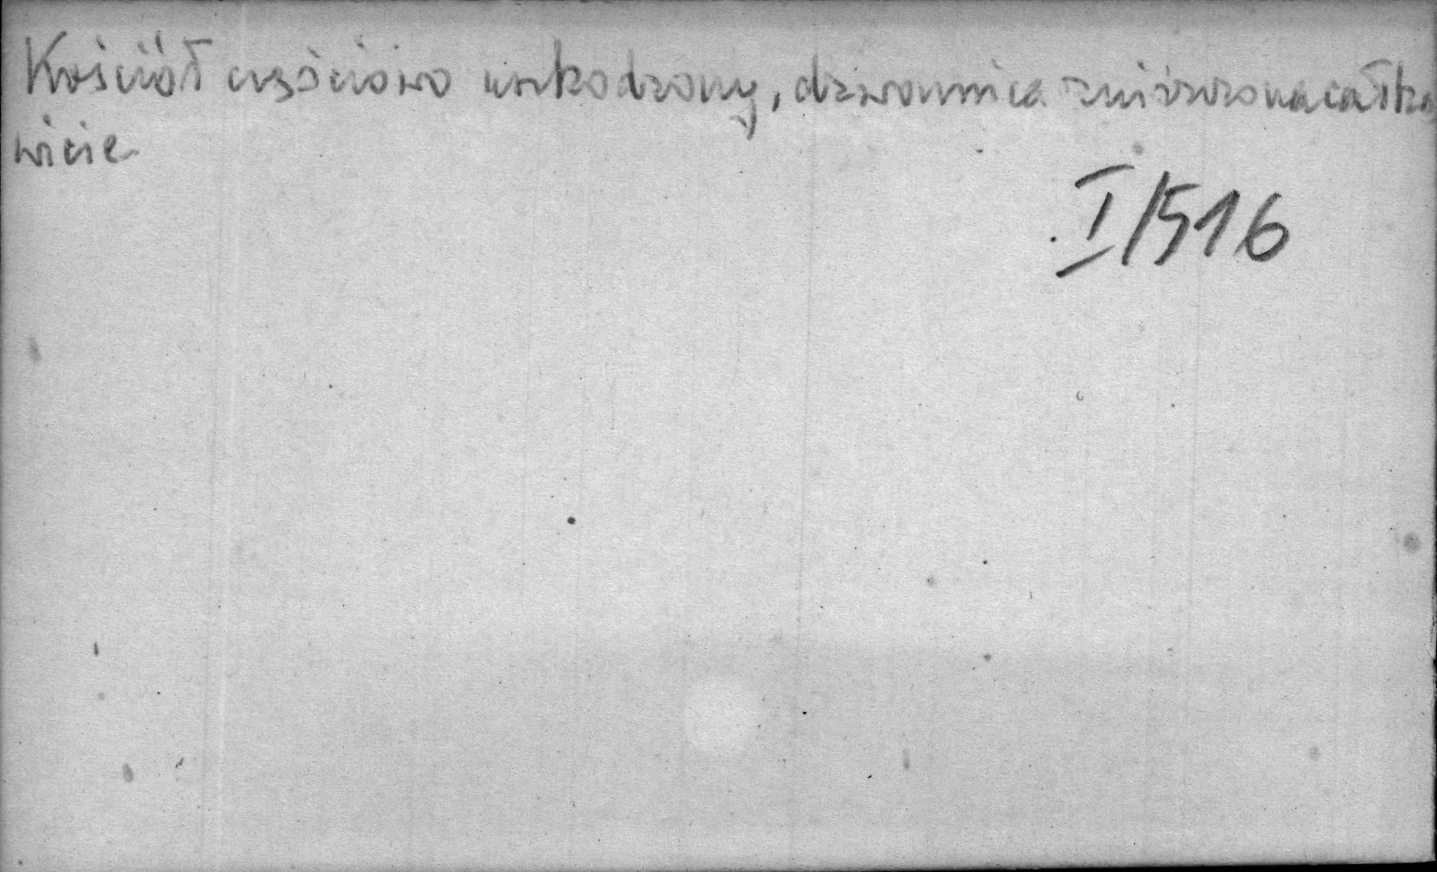 Kościół częściowo uszkodzony, dzwonnica zniszczona całko
wicie
I/516